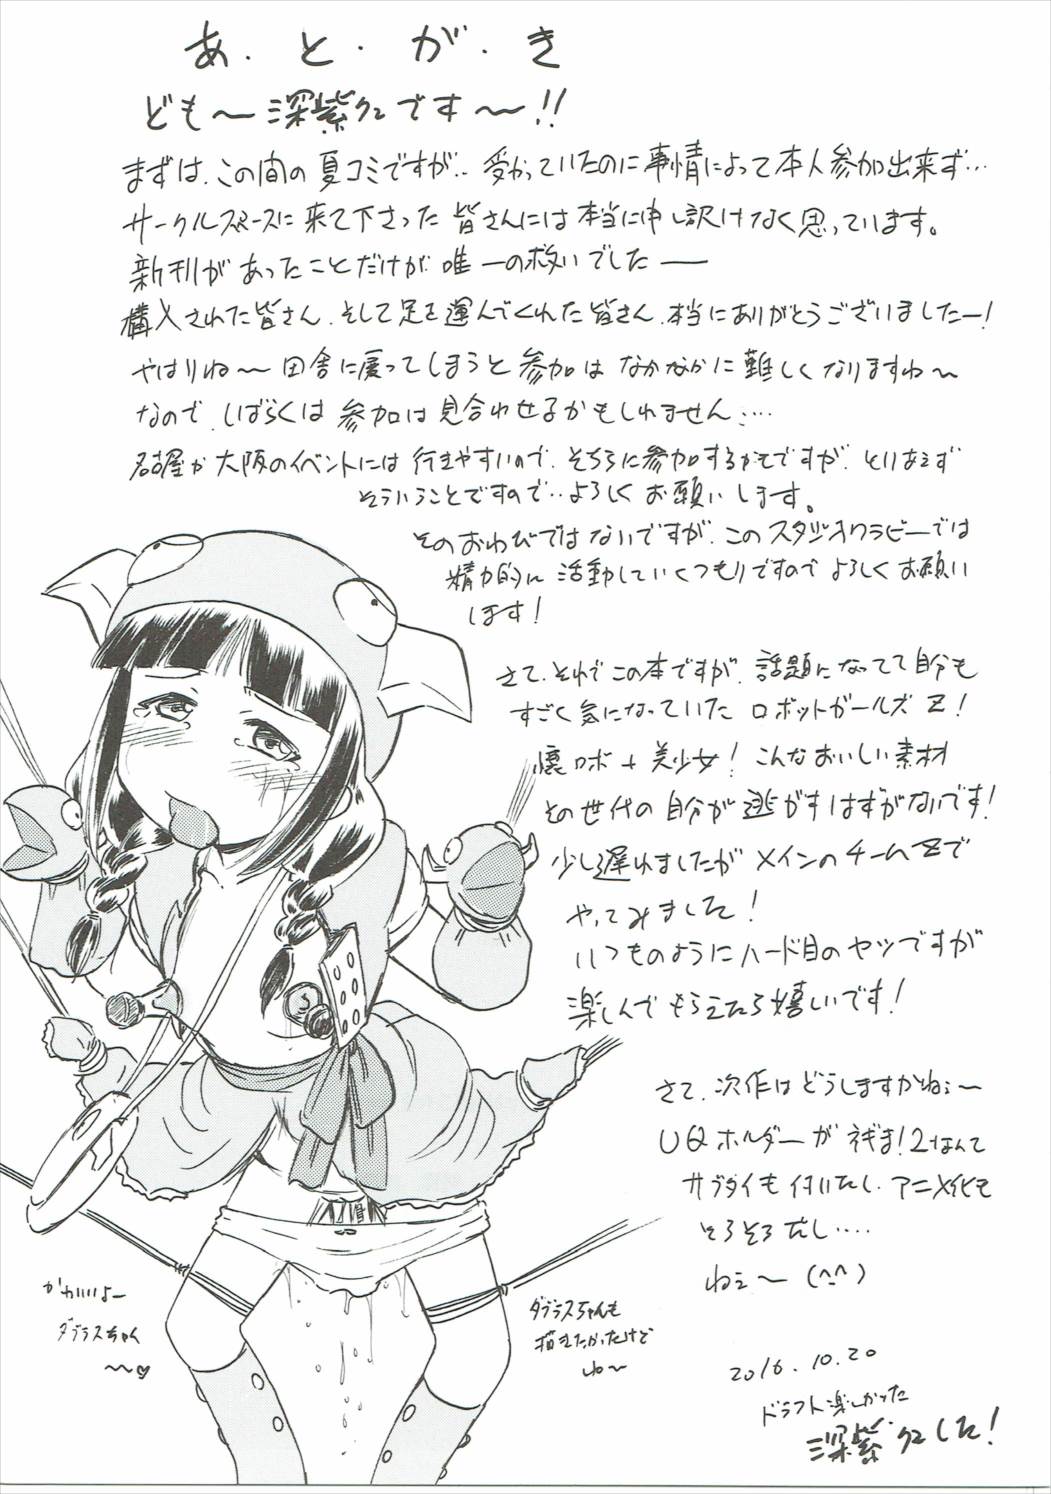 あ・と・が・き
ども～深紫クニです～!!
まずは、この間の夏コミですが‥受かっていたのに事情によって本人参加出来ず…
サークルスペースに来て下さった皆さんには本当に申し訳けなく思っています。
新刊があったことだけが唯一の救いでしたー
構入された皆さん、そして足を運んでくれた皆さん、本当にありがとうございましたー!
やはりね～田舎に戻ってしまうと参加はなかなかに難しくなりますね～
なので、しばらくは参加は見合わせるかもしれません…‥
名古屋か大阪のイベントには行きやすいので、そちらに参加するかもですが、とりあえず
そういうことですので‥よろしくお願いします。
そのおわびではないですが、このスタジオワラビーでは
精力的に活動していくつもりですのでよろしくお願い
します!
さて、それでこの本ですが、話題になってて自分も
すごく気になっていたロボットガールズZ!
懐ロボ+美少女!こんなおいしい素材
その世代の自分が逃がすはずがないです!
少しろ遅れましたがメインのチームZで
やってみました!
いつものようにハード目のヤツですが
楽しんでもらえたら嬉しいです!
さて、次作はどうしますかねぇ～
UQホルダーがネギま!2なんて
サブタイも付いたし、アニメ化も
そろそろだし‥‥
ねぇ～(^-^)
かわいいよー
ダブラスちゃん
～～♡
ダブラスちゃんも
描きたかったけど
ね～
2016.10.20
ドラフト楽しかった
深紫クニした!